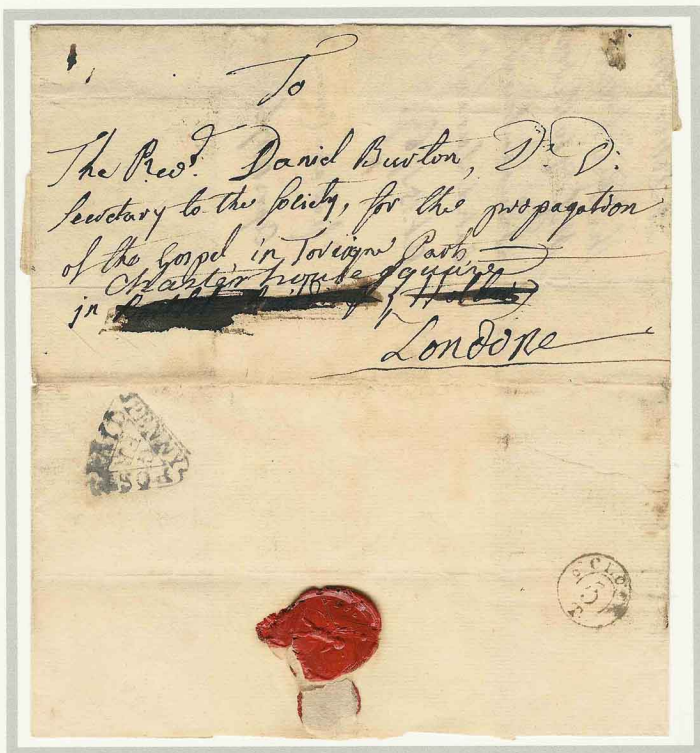 To
The Revd. Daniel Burton, D. D.
Secretary to the Society, for the propagation
of the Gospel in Foreigne Parts
Charterhouse Square
in
Londone
PENNY
POST
PAID
O CLOCK
5